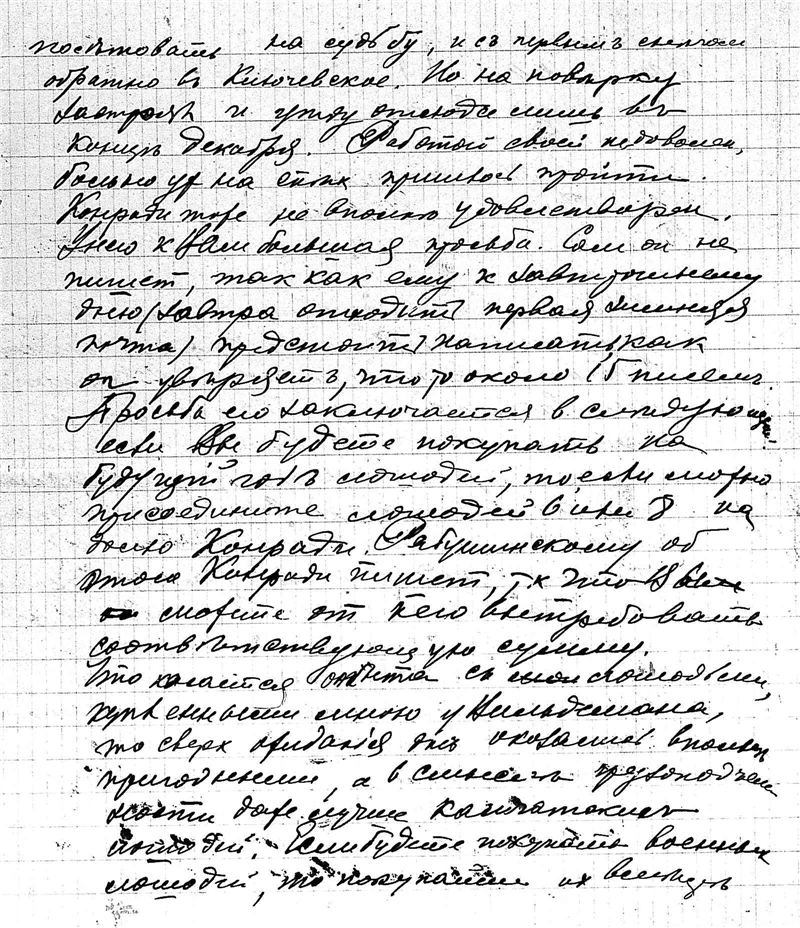 посѣтовать на судьбу, и съ первымъ снегом
обратно въ Ключевское. Но на поверку
застрял и уѣду отсюда лишь въ
концѣ декабря. Работой своей недоволен,
больно уж на спѣх пришлось пройти.
Конради тоже не вполнѣ удовлетворен.
У него к Вам большая просьба. Сам он не
пишет, так как ему к завтрашнему
дню (завтра отходитъ первая зимняя
почта) предстоитъ написать, как
он увѣряетъ, что то около 15 писем.
Просьба его заключается в следующем:
если Вы будете покупать на
будущій годъ лошадей, то, если можно
присоедините лошадей 6 или 8 на
долю Конради. Рябушинскому об
этом Конради пишет, т к что Вы
сможете от него вытребовать
соотвѣтствующую сумму.
Что касается опыта съ лошадьми,
купленными мною у Вильдемана,
то сверх ожиданія они оказались вполнѣ
пригодными, а в смыслѣ грузоподъем
ности даже лучше камчатских
лошадей. Если будете покупать военных
лошадей, то покупайте их